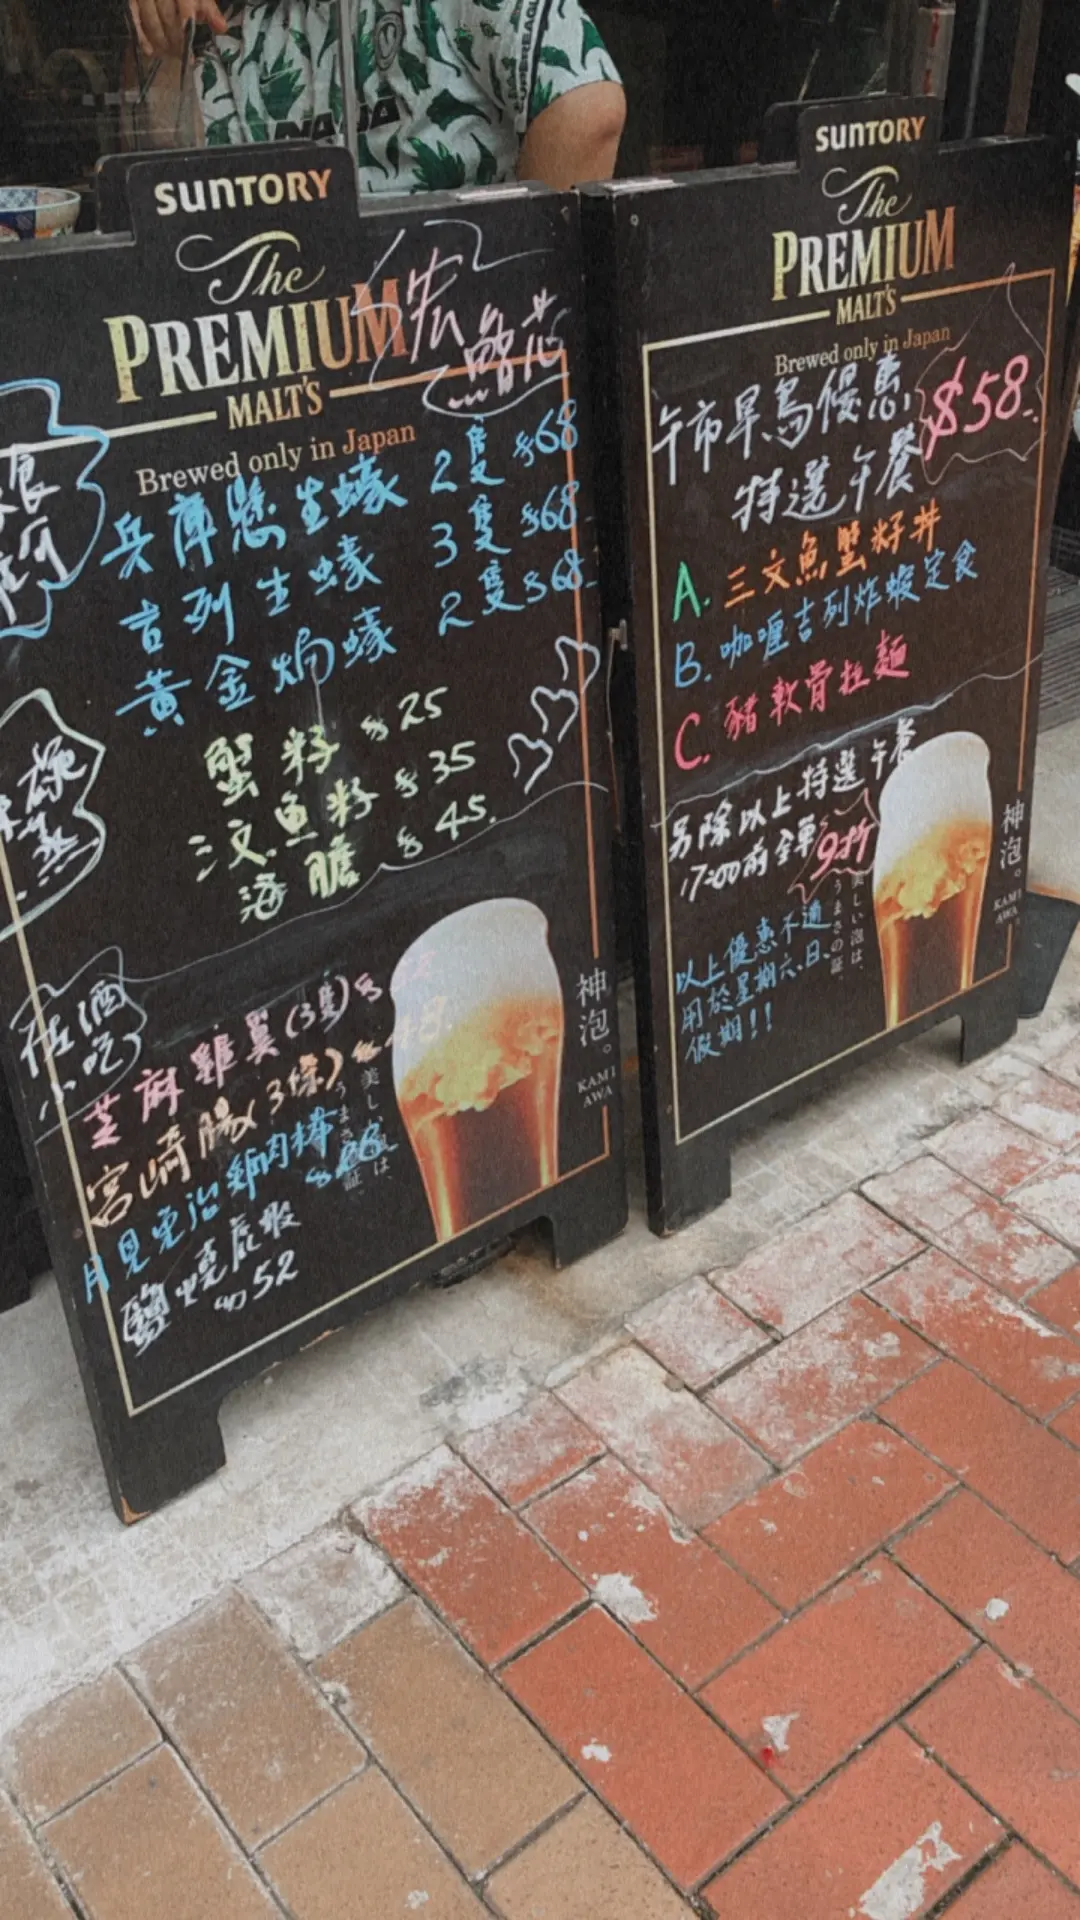 SUNTORY
The
PREMIUM
MALT'S
Brewed only in Japan
兵庫懸生蠔 2隻 $68
吉列生蠔 3隻 $68
黃金焗蠔 2隻 $68
蟹籽 $25
三文魚籽 $35
海膽 $45.
佐酒
小吃
芝麻雞翼(3隻) $
宮崎腸(3條)
月見免治雞肉棒
鹽燒
52
神泡。
KAMI
AWA
SUNTORY
The
PREMIUM
MALT'S
Brewed only in Japan
午市早鳥優惠 $58
特選午餐
A. 三文魚蟹籽丼
B. 咖喱吉列炸蝦定食
C. 豬軟骨拉麵
另除以上特選午餐
17:00前全單9折
以上優惠不適
用於星期六.日.
假期!!
美しい泡は、
うまさの証。
神泡。
KAMI
AWA